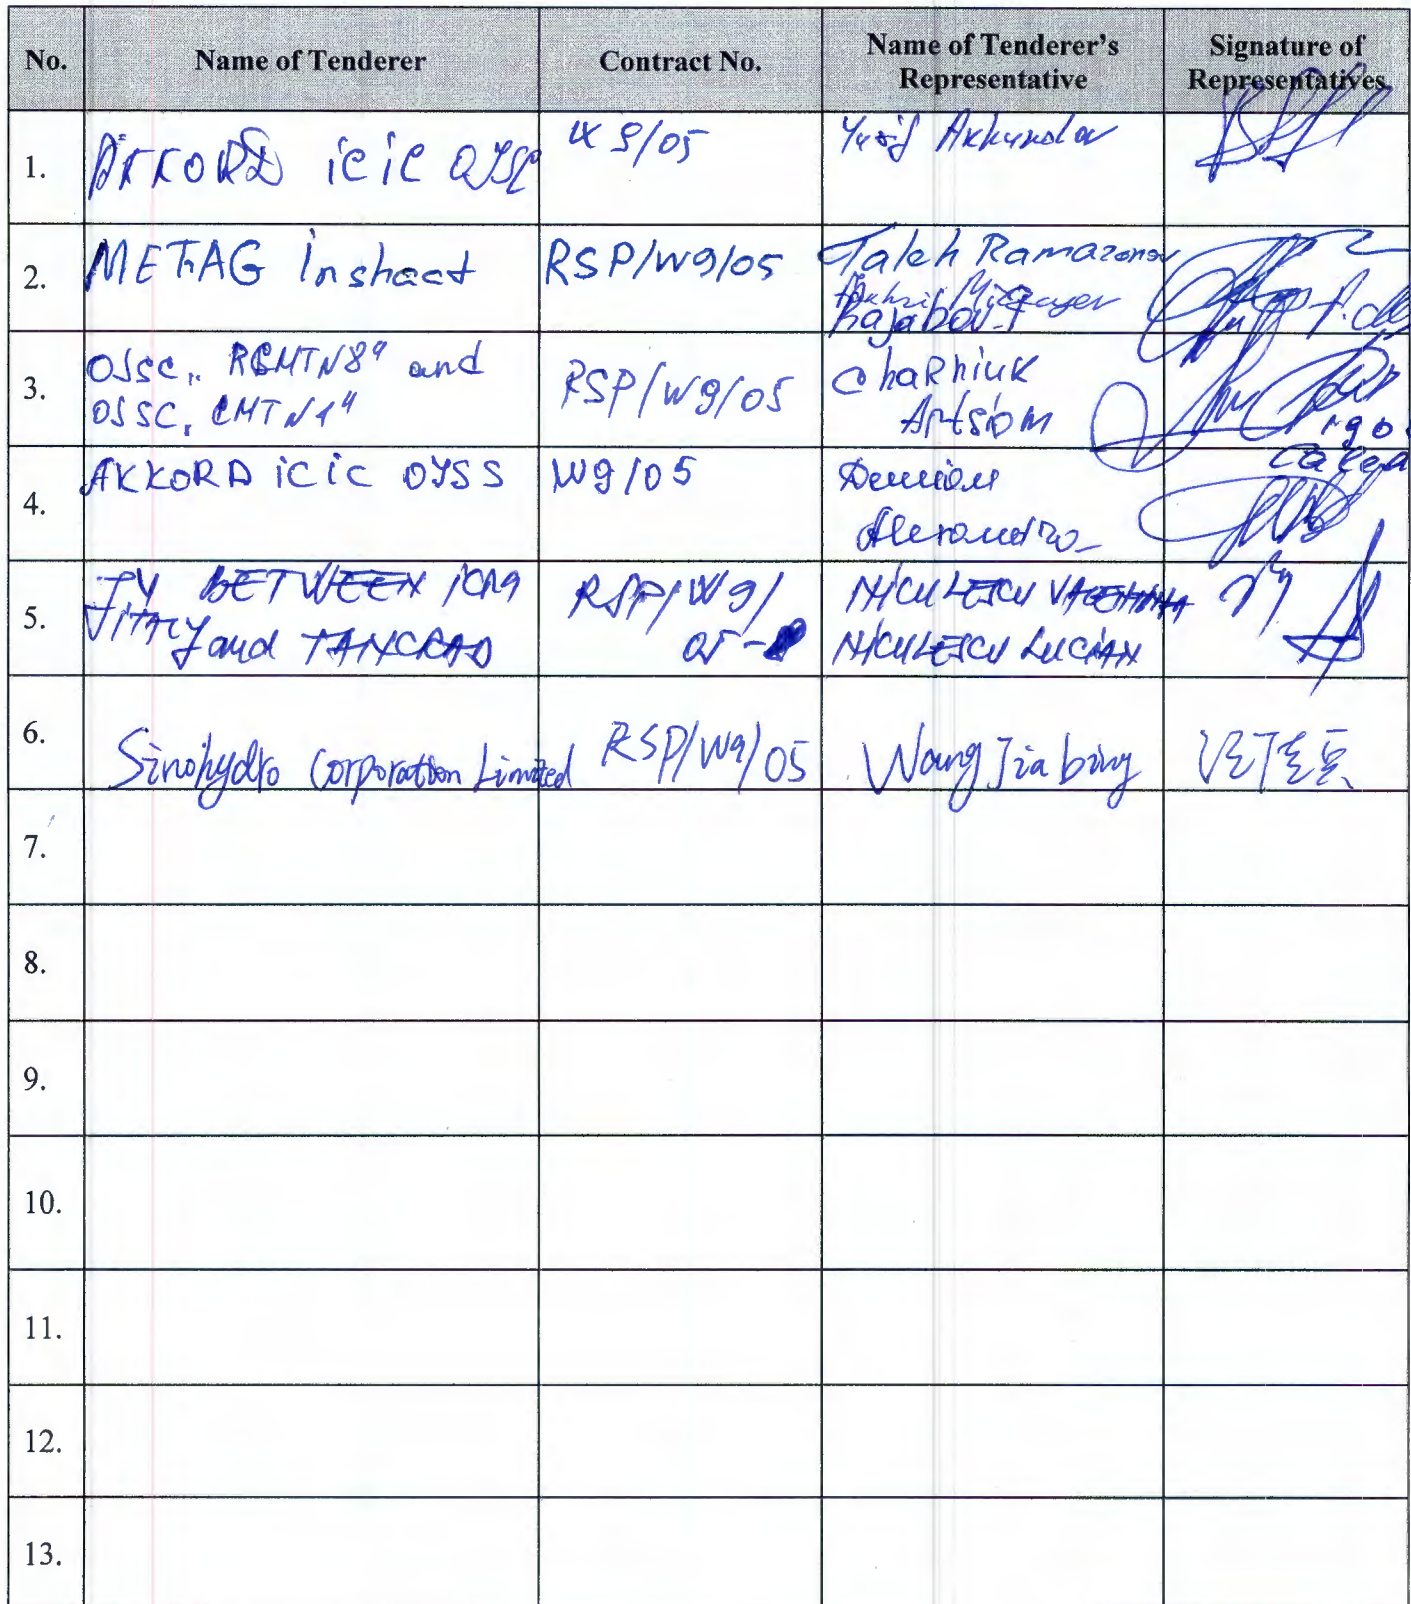 No. Name of Tenderer Contract No. Name of Tenderer's Representative Signature of Representatives
1. AKKORD ICIC OJSC W 9/05 Yusif
2. METAG Inshaat RSP/W9/05 Taleh Ramazanov
Rajabov T
3. OJSC "RSMT N8" and RSP/W9/05 Charniuk
OJSC "CMT N1" Artsiom
4. AKKORD ICIC OJSS W9/05
5. JV BETWEEN RSP/W9/ NICULESCU
and TANCRAD 05 NICULESCU LUCIAN
6. Sinohydro Corporation Limited RSP/W9/05 Wang Jiabing 汪佳兵
7.
8.
9.
10.
11.
12.
13.